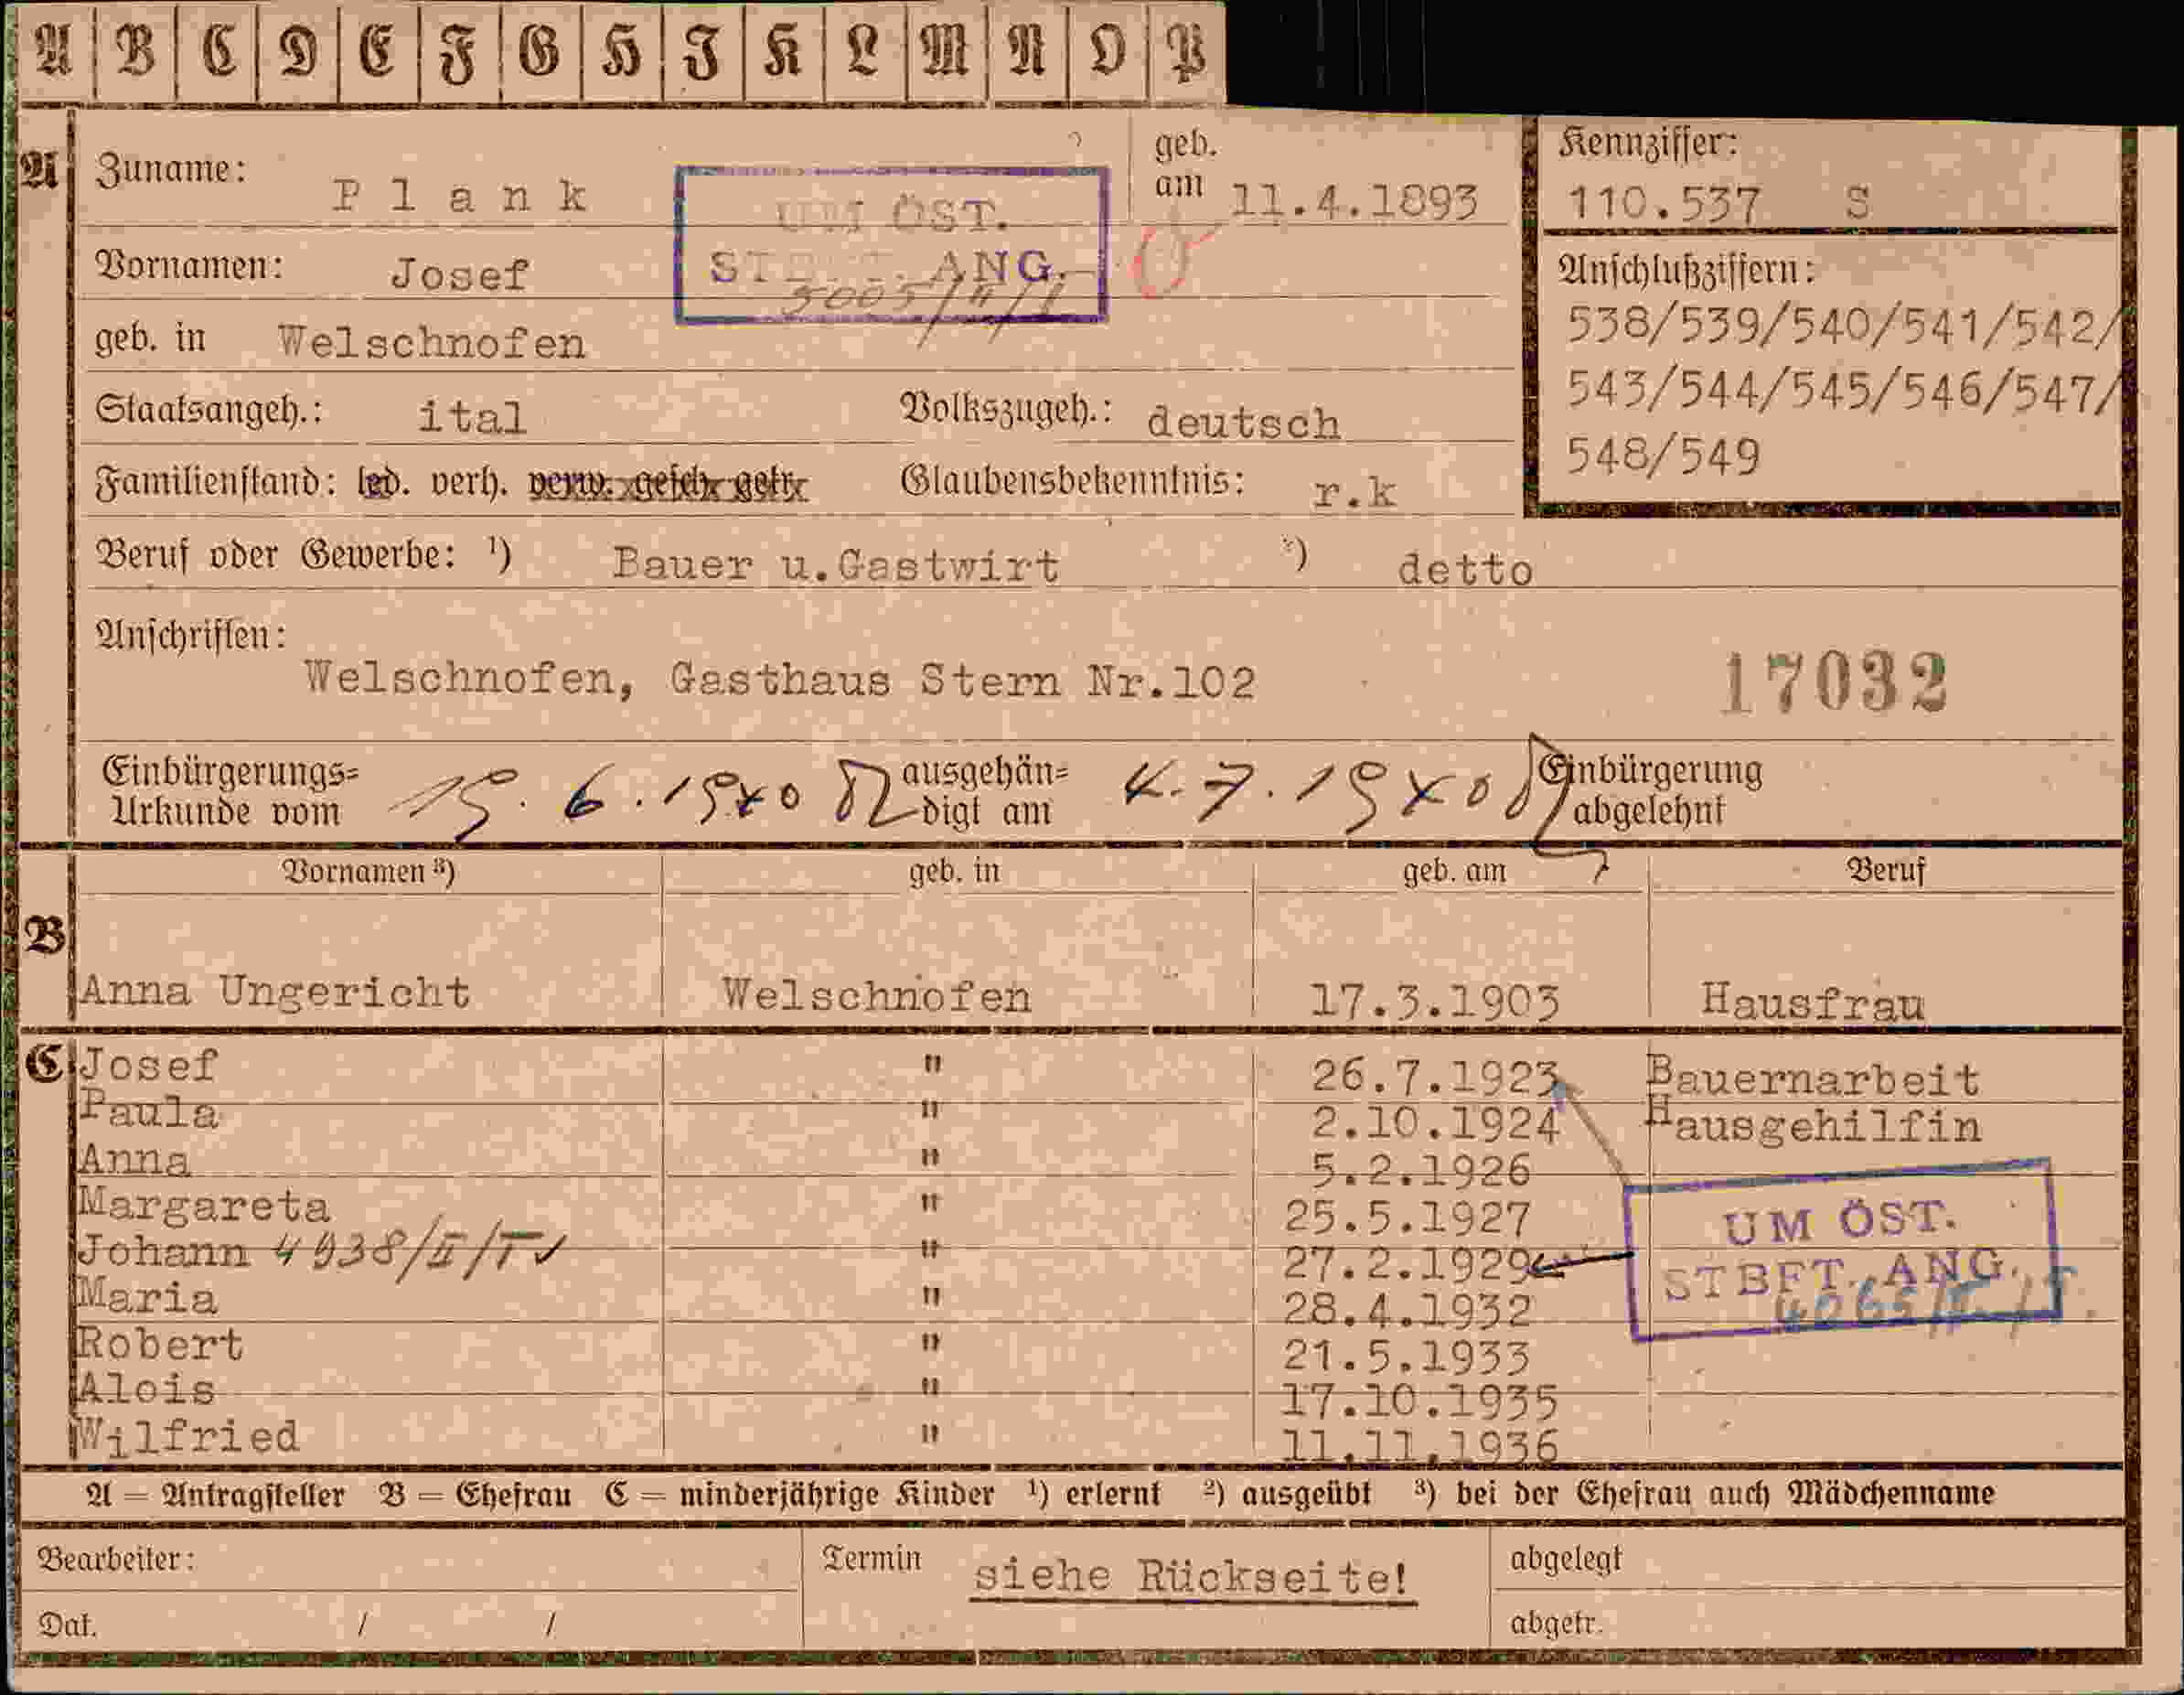 A B C D E F G H I K L M N O P
A Zuname: Plank geb. am 11.4.1893
Kennziffer: 110.537 S
UM ÖST.
ANG.
5005/II/I
Vornamen: Josef
Anschlußziffern:
538/539/540/541/542/
543/544/545/546/547/
548/549
geb. in Welschnofen
Staatsangeh.: ital Volkszugeh.: deutsch
Familienstand: led. verh. verw. gesch. getr. Glaubensbekenntnis: r.k
Beruf oder Gewerbe: ¹) Bauer u.Gastwirt ²) detto
Anschriften:
Welschnofen, Gasthaus Stern Nr.102
17032
Einbürgerungs=Urkunde vom 19.6.1940 ausgehän=digt am 4.7.1940 Einbürgerung abgelehnt
Vornamen ³) geb. in geb. am Beruf
B Anna Ungericht Welschnofen 17.3.1903 Hausfrau
C Josef " 26.7.1923 Bauernarbeit
Paula " 2.10.1924 Hausgehilfin
Anna " 5.2.1926
Margareta " 25.5.1927
Johann 4938/II/I " 27.2.1929
Maria " 28.4.1932
Robert " 21.5.1933
Alois " 17.10.1935
Wilfried " 11.11.1936
UM ÖST.
STBFT. ANG.
A = Antragsteller B = Ehefrau C = minderjährige Kinder ¹) erlernt ²) ausgeübt ³) bei der Ehefrau auch Mädchenname
Bearbeiter: Termin siehe Rückseite! abgelegt
Dat. / / abgetr.